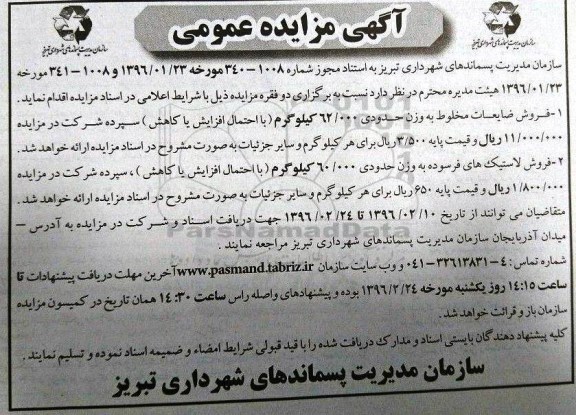 آگهی مزایده عمومی
سازمان مدیریت پسماندهای شهرداری تبریز
سازمان مدیریت پسماندهای شهرداری تبریز
سازمان مدیریت پسماندهای شهرداری تبریز به استناد مجوز شماره ۱۰۰۸-۳۴۰ مورخه ۱۳۹۶/۰۱/۲۳ و ۱۰۰۸-۳۴۱ مورخه
۱۳۹۶/۰۱/۲۳ هیئت مدیره محترم در نظر دارد نسبت به برگزاری دو فقره مزایده ذیل با شرایط اعلامی در اسناد مزایده اقدام نماید.
۱-فروش ضایعات مخلوط به وزن حدودی ۶۲/۰۰۰ کیلوگرم (با احتمال افزایش یا کاهش) سپرده شرکت در مزایده
۱۱/۰۰۰/۰۰۰ ریال و قیمت پایه ۳/۵۰۰ ریال برای هر کیلو گرم و سایر جزئیات به صورت مشروح در اسناد مزایده ارائه خواهد شد.
۲-فروش لاستیک های فرسوده به وزن حدودی ۶۰/۰۰۰ کیلوگرم (با احتمال افزایش یا کاهش)، سپرده شرکت در مزایده
۱/۸۰۰/۰۰۰ ریال و قیمت پایه ۶۵۰ ریال برای هر کیلو گرم و سایر جزئیات به صورت مشروح در اسناد مزایده ارائه خواهد شد.
متقاضیان می توانند از تاریخ ۱۳۹۶/۰۲/۱۰ تا ۱۳۹۶/۰۲/۲۴ جهت دریافت اسناد و شرکت در مزایده به آدرس -
میدان آذربایجان سازمان مدیریت پسماندهای شهرداری تبریز مراجعه نمایند.
ParsNamadData
شماره تماس: ۴-۳۲۶۱۳۸۳۱-۰۴۱ و وب سایت سازمان www.pasmand.tabriz.ir آخرین مهلت دریافت پیشنهادات تا
ساعت ۱۴:۱۵ روز یکشنبه مورخه ۱۳۹۶/۲/۲۴ بوده و پیشنهادهای واصله راس ساعت ۱۴:۳۰ همان تاریخ در کمیسیون مزایده
سازمان باز و قرائت خواهد شد.
کلیه پیشنهاد دهندگان بایستی اسناد و مدارک دریافت شده را با قید قبولی شرایط امضاء و ضمیمه اسناد نموده و تسلیم نمایند.
سازمان مدیریت پسماندهای شهرداری تبریز